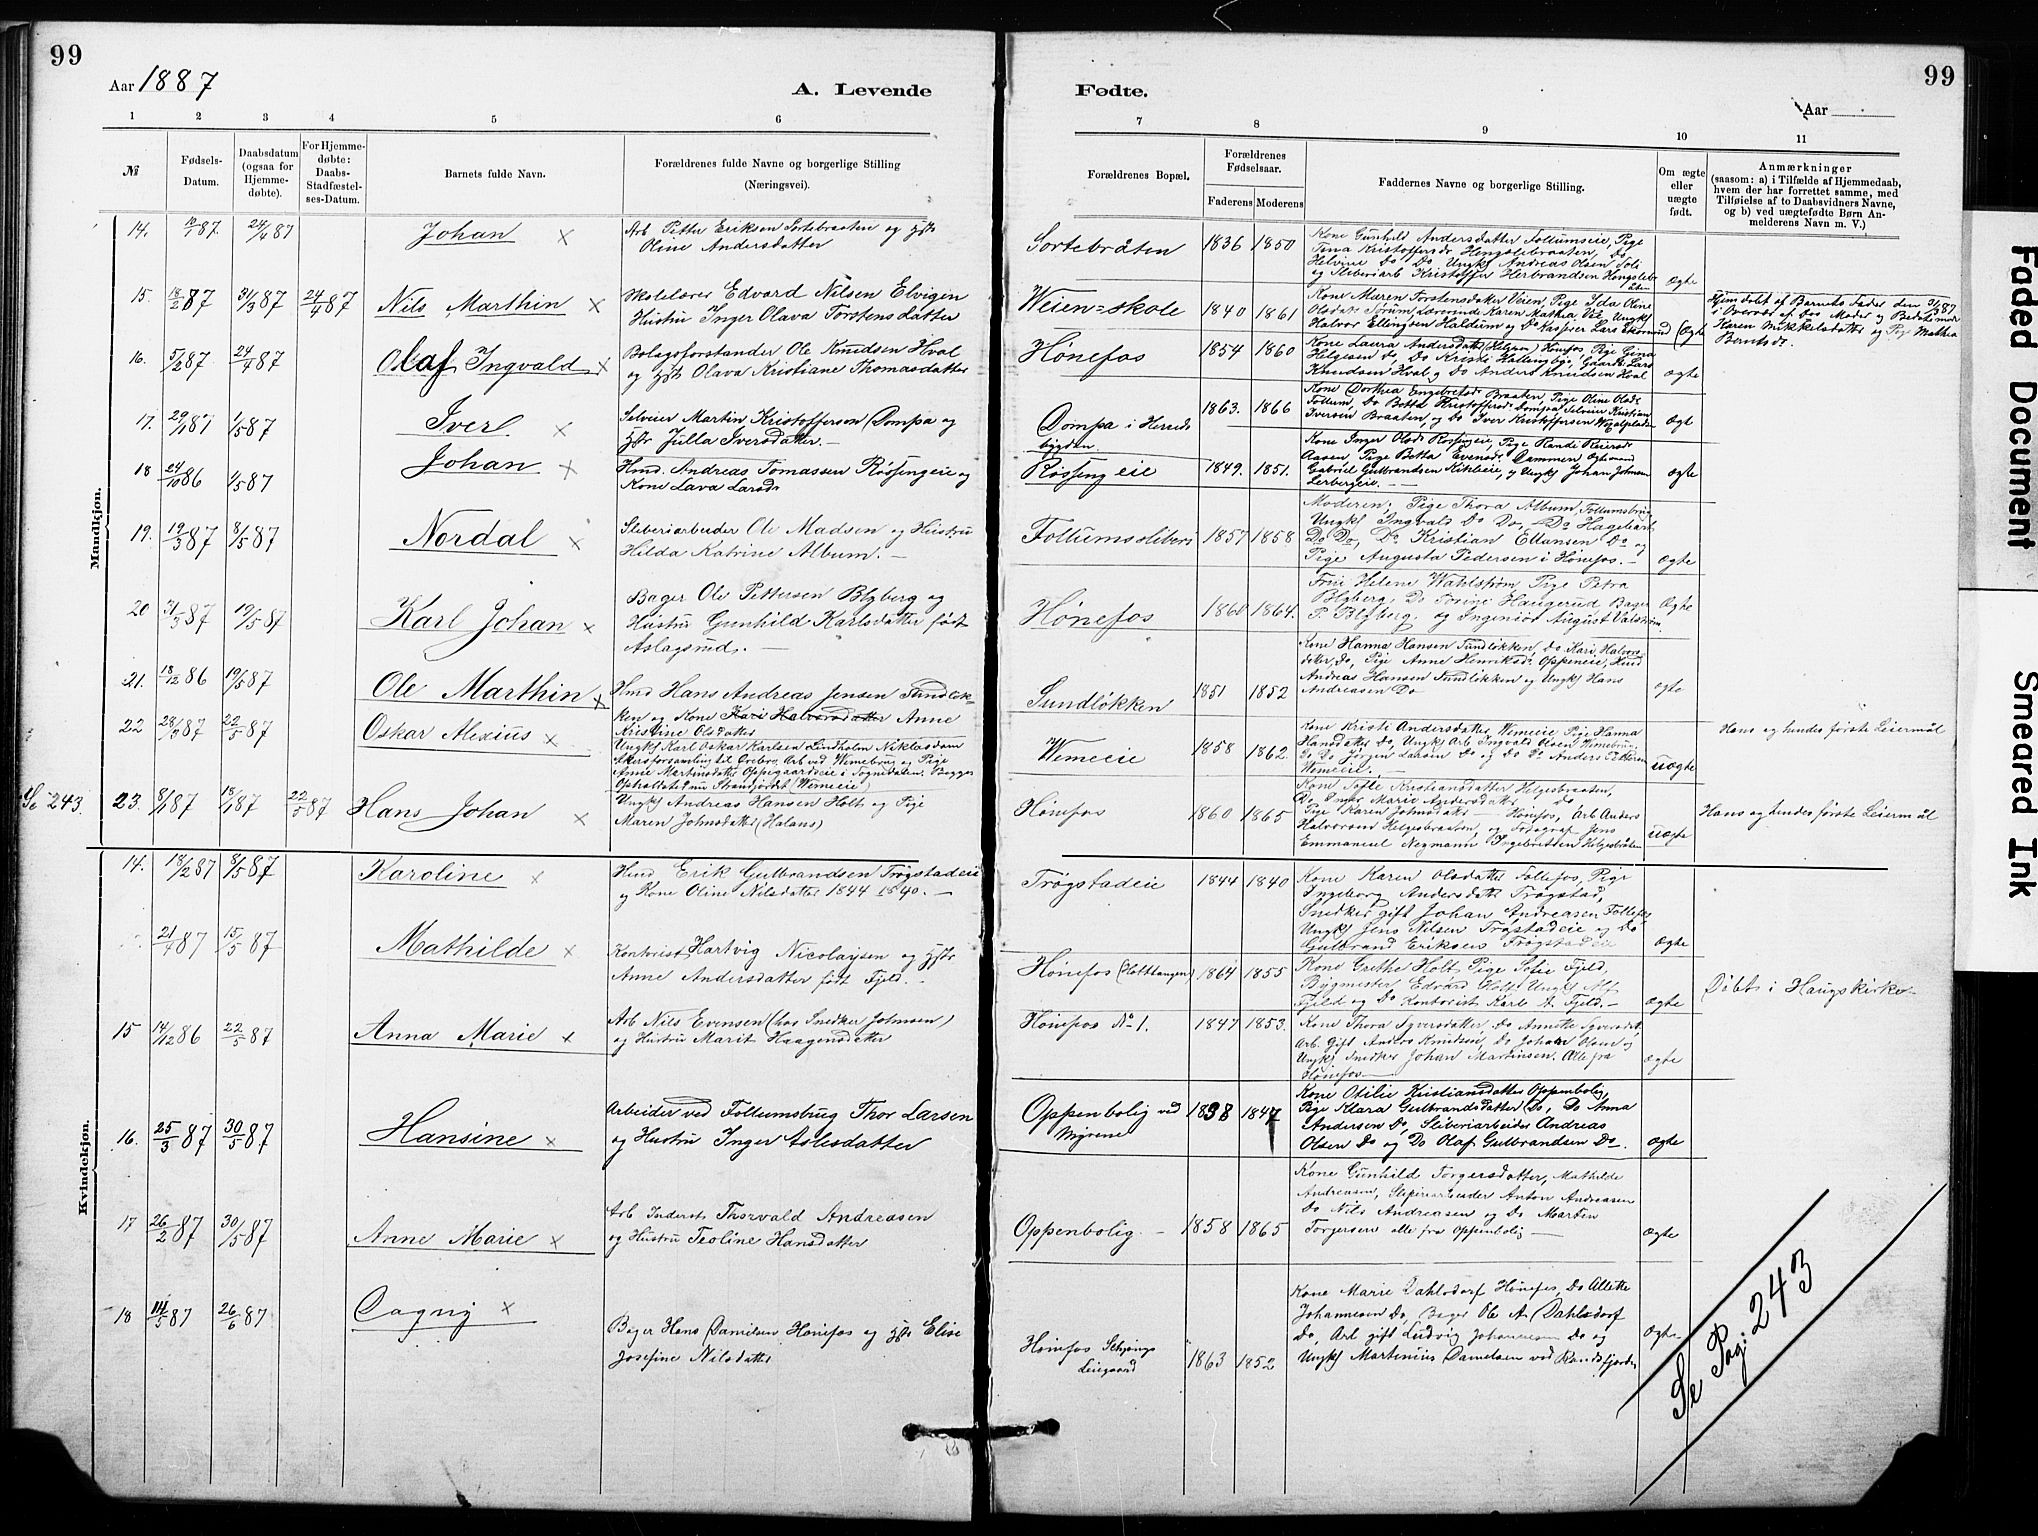 99
Aar 1887
A. Levende
1 2 3 4 5 6
№
Fødsels-Datum.
Daabsdatum (ogsaa for Hjemmedøbte).
For Hjemmedøbte: Daabs-Stadfæstelses-Datum.
Barnets fulde Navn.
Forældrenes fulde Navne og borgerlige Stilling
(Næringsvei).
Mandkjøn.
14. 24/4 87 Johan x
Arb Petter Eriksen Sortebraaten og
Oline Andersdatter
15. 18/2 87 31/3 87 24/4 87 Nils Marthin x
Skolelærer Edvard Nilsen Elvigen
Hustru Inger Olava Torstensdatter
16. 5/2 87 24/4 87 Olaf Ingvald x
Bolagsforstander Ole Knudsen Hval
og Olava Kristiane Thomasdatter
17. 29/1 87 1/5 87 Iver x
Selveier Martin Kristofferson Dompa og
Julla Iversdatter. –
18 24/10 86 1/5 87 Johan x
Hmd. Andreas Tomassen Røssingeie og
Kone Lava Larsdr
19. 19/3 87 8/5 87 Nordal x
Sliberiarbeider Ole Madsen og Hustru
Hilda Katrine Album. –
20 31/3 87 19/5 87 Karl Johan x
Bager Ole Pettersen Blyberg og
Hustru Gunhild Karlsdatter født
Aslagsrud. –
21. 18/12 86 19/5 87 Ole Marthin x
Hmd Hans Andreas Jensen Sundløk-
ken og Kone Kari Halvorsdatter Anne
Kristine Olsdatter
22 28/3 87 22/5 87 Oskar Alexius x
Ungkf Karl Oskar Karlsen Lindholm Niklasdam
Akersforsamling til Örebro, Arb ved Wemebrug og Pige
Annie Martinsdatter Oppegaardseie i Sognedalen. Begges
Opholdsted nu Strandjordet (Wemeeie)
Se 243. 23. 8/1 87 18/1 87 22/5 87 Hans Johan x
Ungkf Andreas Hansen Holt og Pige
Maren Johnsdatter (Halans)
Kvindekjøn.
14. 18/2 87 8/5 87 Karoline x
Hmd Erik Gulbrandsen Trøgstadeie
og Kone Oline Nilsdatter 1844 1840. –
21/4 87 15/5 87 Mathilde x
Kontorist Hartvig Nicolaysen og
Anne Andersdatter født Fjeld. –
15 14/12 86 22/5 87 Anna Marie x
Arb Nils Evensen (hos Snedker Johnsen)
og Hustru Marit Haagensdatter
16. 25/3 87 30/5 87 Hansine x
Arbeider ved Follumsbrug Thor Larsen
og Hustru Inger Aslesdatter
17 26/2 87 30/5 87 Anne Marie x
Arb Inderst Thorvald Andreasen
og Hustru Teoline Hansdatter
18 14/5 87 26/6 87 Dagny x
Bager Hans Danielsen Hønefos og Elise
Josefine Nilsdatter
99
Fødte.
Aar
7 8 9 10 11
Forældrenes Bopæl.
Forældrenes Fødselsaar.
Faderens Moderens
Faddernes Navne og borgerlige Stilling.
Om ægte eller uægte født.
Anmærkninger
(saasom: a) i Tilfælde af Hjemmedaab,
hvem der har forrettet samme, med
Tilføielse af to Daabsvidners Navne,
og b) ved uægtefødte Børn An-
melderens Navn m. V.)
Sortebråten 1836 1850
Kone Gunhild Andersdatter Follumseie, Pige
Tina Kristoffersdr Hengslebraaten, Do
Helvine Do Do Ungkf Andreas Olsen Foli
og Sliberiarb Kristoffer Herbrandsen Hengsleb
åten ægte
Weien-skole 1840 1861
Kone Maren Torstensdatter Veien, Pige Ida Oline
Halvor Ellingsen Haldum og Do Kasper Lars Skorund ægte
Hjemdøbt af Barnets Fader den 31/3 87
i Overvær af Dos Moder og Bedstemoder
Karen Mikkelsdatter og Pige Mathea
Berntsdr.
Hønefos 1854 1860
Kone Laura Andersdatter Hønefos, Pige Gina
Helgesen Do, Do Kristi Hallingby, Gaardb. Lars
Knudsen Hval og Do Anders Knudsen Hval ægte
Dompa i Herreds
bygden 1863. 1866
Kone Dorthea Engebretsdr Braaten, Pige Oline Olsdr
Follum, Do Betta Kristoffersdr Dompa, Selveier Kristian
Iversen Braaten, og Do Iver Kristoffersen ægte
Røssingeie 1849. 1851.
Kone Inger Olsdr Røssingeie, Pige Randi Reiersdr
Aasen, Pige Betha Evensdr Dammen,
Gabriel Gulbrandsen og Ungkf Johan Johnsen
Lerbergeie. – ægte
Follumssliberi 1857 1858
Moderen; Pige Thora Album, Follumsbrug
Ungkf Ingvald Do Do, Do Hagebart
Do Do, Do Kristian Ellansen Do og
Pige Augusta Pedersen i Hønefos. – ægte
Hønefos 1860 1864.
Frue Helene Wahlstrøm Pige Petra
Blyberg, Do Torine Haugerud Bager
P. Blyberg. og Ingeniør August Valstrøm. ægte
Sundløkken 1851 1852
Kone Hanna Hansen Sundløkken, Do Kari Halvors
datter, Do, Pige Anne Henriksdr Oppeneie, Hmd
Andreas Hansen Sundløkken og Ungkf Hans
Andreasen Do ægte
Wemeeie 1858 1862.
Kone Kristi Andersdatter Wemeeie Pige Hanna
Hansdatter Do, Ungkf Arb Ingvald Olsen Wemebrug
Do Do Jörgen Larsen Do og Do Do Anders Pettersen
Wemeeie. – uægte
Hans og hendes første Leiermål
Hønefos 1860 1865
Kone Tofle Kristiansdatter Helgesbraaten,
Do Inger Marie Andersdatter Do
Pige Karen Johnsdatter – Hønefos, Arb Anders
Halvorsen Helgesbraaten, og Fotograf Jens
Emmanuel Negmann Ingebretsen Helgesbråten uægte
Hans og hendes første Leiermål
Trøgstadeie 1844 1840
Kone Karen Olsdatter Follefos, Pige
Ingeborg Andersdatter Trøgstad,
Snedker gift Johan Andreasen Follefos,
Ungkf Jens Nilsen Trøgstadeie og Do
Gulbrand Eriksen Trøgstadeie ægte
Hønefos 1864 1855
Kone Grethe Holt Pige Sofie Fjeld,
Bygmester Edvard Holt Ungkf Alf
Fjeld og Do Kontorist Karl A. Fjeld. – ægte
Døbt i Haugs kirke –
Hønefos No 1. 1847 1853.
Kone Thora Syversdatter, Do Annette Syversdtr
Arb. Gift Anders Knudsen, Do Johan Olsen og
Ungkf Snedker Johan Martinsen. Alle fra
Hønefos – ægte
Oppenbolig ved
Myrene 1838 1847
Kone Otilie Kristiansdatter Oppenbolig,
Pige Klara Gulbrandsdatter Do, Do Anna
Andersen Do, Sliberiarbeider Andreas
Olsen Do og Do Olaf Gulbrandsen Do –. ægte
Oppenbolig. – 1858 1865
Kone Gunhild Torgersdatter, Mathilde
Andreasen, Sliperiarbeider Anton Andreasen
Do Nils Andreasen og Do Morten
Torgersen alle fra Oppenbolig – ægte
Hønefos Schjongs
Leiegaard 1863 1852
Kone Marie Dahlsdorf Hønefos, Do Alette
Johannesen Do, Bager Ole A. Dahlsdorf
Do, Arb gift Ludvig Johannesen Do og
Ungkf Martenius Danielsen ved Randsfjorden ægte –
Se Pag: 243
Faded Document
Smeared Ink